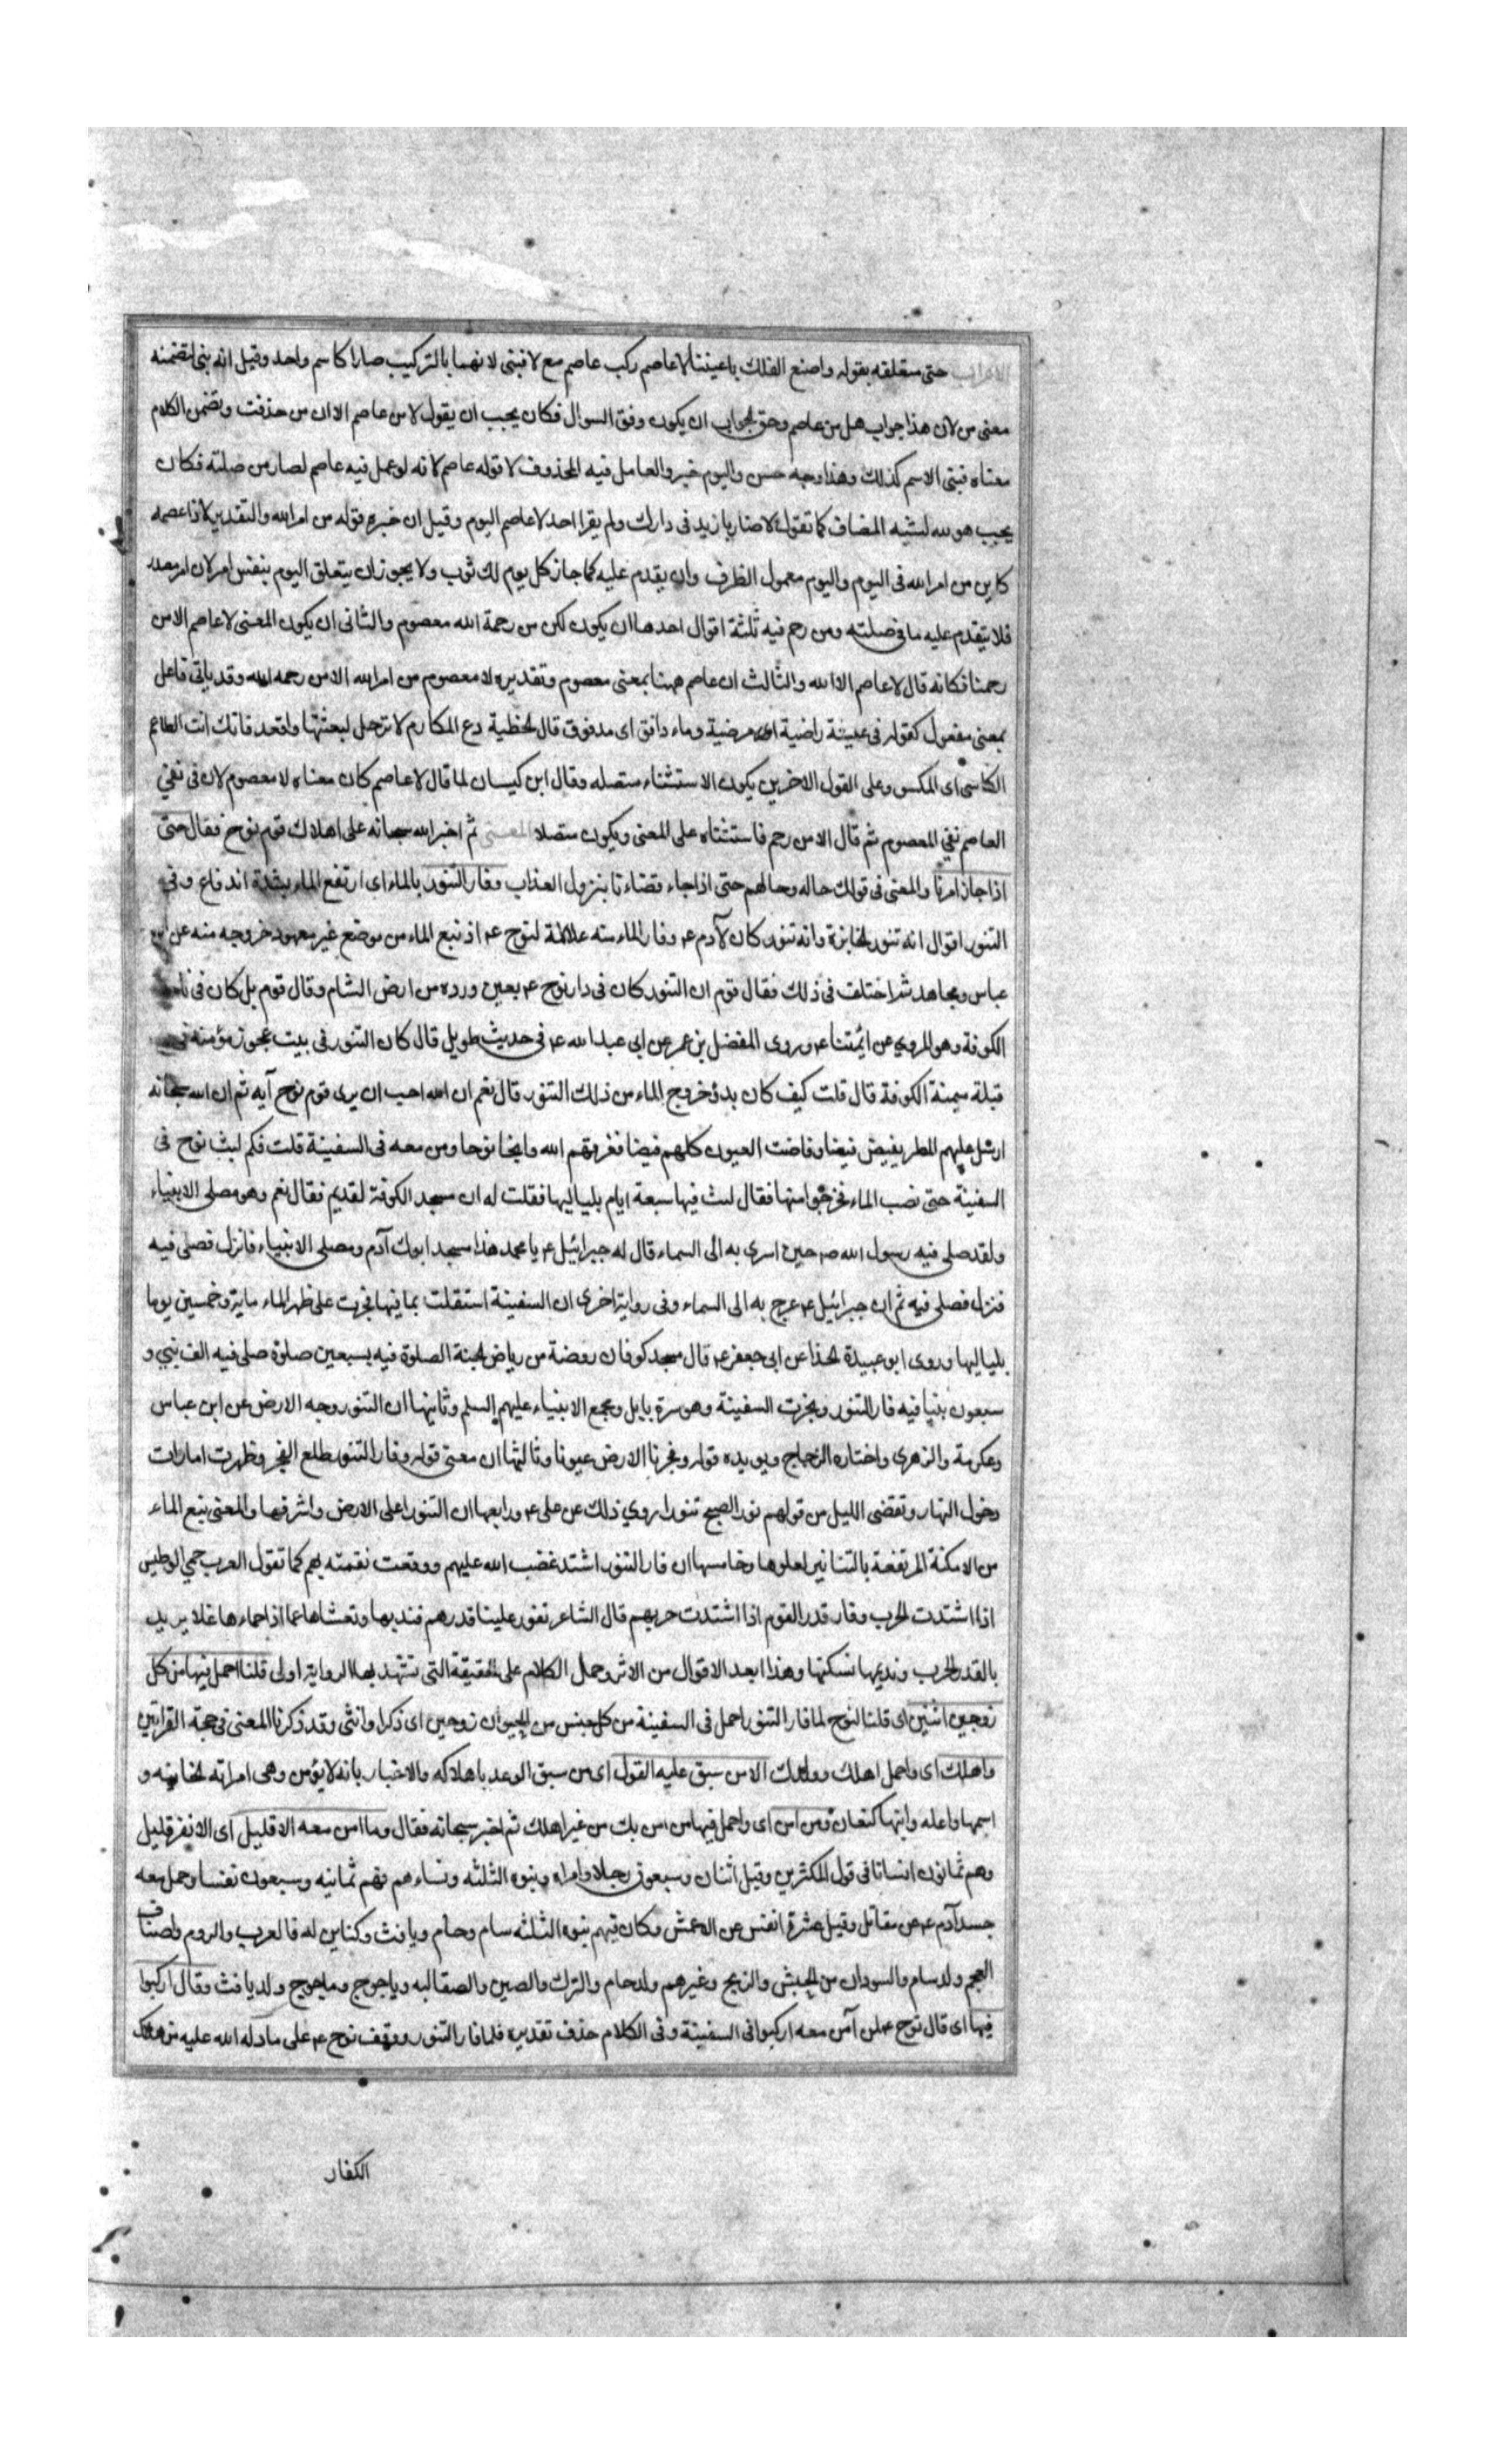 الاعراب حتى متعلقه بقوله واصنع الفلك باعيننا لا عاصم ركب عاصم مع لا فبنى لانهما بالتركيب صارا كاسم واحد وقيل انه بنى لتضمنه
معنى من لان هذا جواب هل من عاصم وحق الجواب ان يكون وفق السوال فكان يجب ان يقول لا من عاصم الا ان من حذفت وتضمن الكلام
معناه فبنى الاسم كذلك وهذا وجه حسن واليوم خبر والعامل فيه المحذوف لا قوله عاصم لانه لو عمل فيه عاصم لصار من صلته فكان
يجب تنوينه لشبه المضاف كما تقول لا ضاربا زيد فى دارك ولم يقرا احد لا عاصم اليوم وقيل ان خبره قوله من امر الله والتقدير لا ذا عصمه
كاين من امر الله فى اليوم واليوم معمول الظرف وان يقدم عليه كما جاز كل يوم لك ثوب ولا يجوز ان يتعلق اليوم بنفس امر لان امر مصدر
فلا يتقدم عليه ما فى صلته ومن رحم فيه ثلثة اقوال احدها ان يكون لكن من رحمة الله معصوم والثانى ان يكون المعنى لا عاصم الا من
رحمنا فكانه قال لا عاصم الا الله والثالث ان عاصم ههنا بمعنى معصوم وتقديره لا معصوم من امر الله الا من رحمه الله وقد ياتى فاعل
بمعنى مفعول كقوله فى عيشة راضية اى مرضية وماء دافق اى مدفوق قال الحطية دع المكارم لا ترحل لبعثتها واقعد فانك انت الطاعم
الكاسى اى المكسو وعلى القول الاخرين يكون الاستثناء متصله وقال ابن كيسان لما قال لا عاصم كان معناه لا معصوم لان فى نفي
العاصم نفي المعصوم ثم قال الا من رحم فاستثناه على المعنى ويكون متصلا المعنى ثم اخبر الله سبحانه على اهلاك قوم نوح فقال حتى
اذا جاء امرنا والمعنى فى قولك حاله وحالهم حتى اذا جاء قضاءنا بنزول العذاب وفار التنور بالماء اى ارتفع الماء بشدة اندفاع وفى
التنور اقوال انه تنور الخابزة وانه تنور كان لآدم ع وفار الماء منه علامة لنوح ع اذ نبع الماء من موضع غير معهود خروجه منه عن ابن
عباس ومجاهد ثم اختلف فى ذلك فقال قوم ان التنور كان فى دار نوح ع بعين وردة من ارض الشام وقال قوم بل كان فى ناحية
الكوفة وهو المروي عن ايمتنا ع وروى المفضل بن عمر عن ابى عبد الله ع فى حديث طويل قال كان التنور فى بيت عجوز مؤمنة فى
قبلة ميمنة الكوفة قال قلت كيف كان بدؤ خروج الماء من ذلك التنور قال نعم ان الله احب ان يرى قوم نوح آيه ثم ان الله سبحانه
ارسل عليهم المطر يفيض فيضا وفاضت العيون كلهم فيضا فغرقهم الله وانجا نوحا ومن معه فى السفينة قلت فكم لبث نوح فى
السفينة حتى نضب الماء فخرجوا منها فقال لبث فيها سبعة ايام بلياليها فقلت له ان مسجد الكوفة لقديم فقال نعم وهو مصلى الانبياء
ولقد صلى فيه رسول الله ص حين اسرى به الى السماء قال له جبرائيل ع يا محمد هذا مسجد ابوك آدم ومصلى الانبياء فانزل فصلى فيه
فنزل فصلى فيه ثم ان جبرائيل ع عرج به الى السماء وفى رواية اخرى ان السفينة استقلت بما فيها فجرت على ظهر الماء ماية وخمسين يوما
بلياليها وروى ابو عبيدة الحذا عن ابى جعفر ع قال مسجد كوفان روضة من رياض الجنة الصلوة فيه بسبعين صلوة صلى فيه الف نبي و
سبعون بنيا فيه فار التنور ونجرت السفينة وهو سرة بابل ومجمع الانبياء عليهم السلم وثانيها ان التنور وجه الارض عن ابن عباس
وعكرمة والزهرى واختاره الزجاج ويويده قوله وفجرنا الارض عيونا وثالثها ان معنى قوله وفار التنور طلع الفجر وظهرت امارات
دخول النهار وتقضى الليل من قولهم نور الصبح تنورا روي ذلك عن على ع ورابعها ان التنور اعلى الارض واشرفها والمعنى نبع الماء
من الامكنة المرتفعة بالتنانير لعلوها وخامسها ان فار التنور اشتد غضب الله عليهم ووقعت نقمته بهم كما تقول العرب حمي الوطيس
اذا اشتدت الحرب وفار قدر القوم اذا اشتدت حربهم قال الشاعر تفور علينا قدرهم فنديمها ونفثاها عنا اذا حماءها غلا يريد
بالقدر الحرب ونديمها نسكنها وهذا ابعد الاقوال من الاثر وحمل الكلام على الحقيقة التى تشهد بها الرواية اولى قلنا احمل فيها من كل
زوجين اثنين اى قلنا لنوح لما فار التنور احمل فى السفينة من كل جنس من الحيوان زوجين اى ذكرا وانثى وقد ذكرنا المعنى فى حجة القراتين
واهلك اى واحمل اهلك وولدك الا من سبق عليه القول اى من سبق الوعد باهلاكه والاخبار بانه لا يؤمن وهى امراته الخاينه و
اسمها واعله وابنها كنعان ومن امن اى واحمل فيها من امن بك من غير اهلك ثم اخبر سبحانه فقال وما امن معه الا قليل اى الا نفر قليل
وهم ثمانون انسانا فى قول المكثرين وقيل اثنان وسبعون رجلا وامراه وبنوه الثلثه ونساءهم فهم ثمانيه وسبعون نفسا وحمل معه
جسد آدم ع عن مقاتل وقيل عشرة انفس عن الاعمش وكان فيهم بنوه الثلثه سام وحام ويافث وكناين له فالعرب والروم واصناف
العجم ولد سام والسودان من الحبش والزنج وغيرهم ولد حام والترك والصين والصقالبه وياجوج وماجوج ولد يافث وقال اركبوا
فيها اى قال نوح لمن آمن معه اركبوا فى السفينة وفى الكلام حذف تقديره فلما فار التنور ووقف نوح ع على ما دله الله عليه من هلاك
الكفار